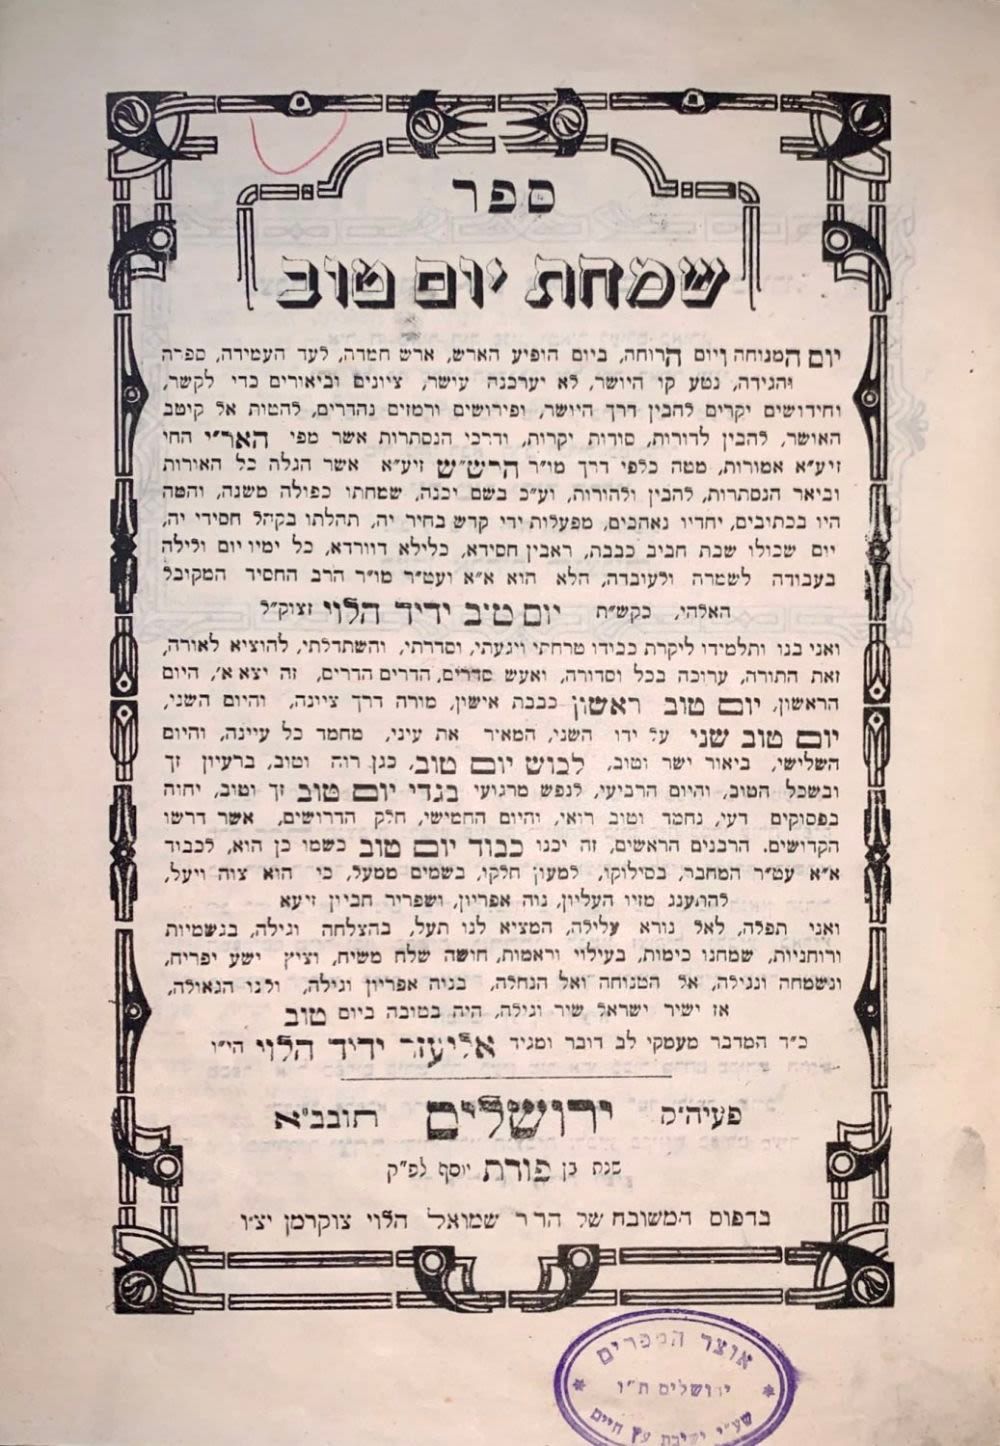 ספר
שמחת יום טוב
יום המנוחה ויום הרוחה, ביום הופיע הארש, ארש חמדה, לעד העמידה, ספרה
והגידה, נטע קו היושר, לא יערכנה עושר, ציונים וביאורים כדי לקשר,
וחידושים יקרים להבין דרך היושר, ופירושים ורמזים נהדרים, להטות אל קיטב
האושר, להבין לדורות, סודות יקרות, ודרכי הנסתרות אשר מפי האר"י החי
זיע"א אמורות, מטה כלפי דרך מו"ר הרש"ש זיע"א אשר הגלה כל האורות
וביאר הנסתרות, להבין ולהורות, וע"כ בשם יכנה, שמחתו כפולה משנה, והמה
היו בכתובים, יחדיו נאהבים, מפעלות ידי קדש בחיר יה, תהלתו בקהל חסידי יה,
יום שכולו שבת חביב כבבת, ראבין חסידא, כלילא דוורדא, כל ימיו יום ולילה
בעבודה לשמרה ולעובדה, הלא הוא א"א ועט"ר מו"ר הרב החסיד המקובל
האלהי, כקש"ת יום טוב ידיד הלוי זצוק"ל
ואני בנו ותלמידו ליקרת כבודו טרחתי ויגעתי, וסדרתי, והשתדלתי, להוציא לאורה,
זאת התורה, ערוכה בכל וסדורה, ואעש סדרים, הדרים הדרים, זה יצא א', היום
הראשון, יום טוב ראשון כבבת אישון, מורה דרך ציונה, והיום השני,
יום טוב שני על ידו השני, המאיר את עיני, מחמד כל עיינה, והיום
השלישי, ביאור ישר וטוב, לבוש יום טוב, כגן רוה וטוב, ברעיון זך
ובשכל הטוב, והיום הרביעי, לנפש מרגועי בגדי יום טוב זך וטוב, יחוה
בפסוקים דעי, נחמד וטוב רואי, והיום החמישי, חלק הדרושים, אשר דרשו
הקדושים. הרבנים הראשים, זה יכנו כבוד יום טוב כשמו כן הוא, לכבוד
א"א עט"ר המחבר, בסילוקו, למעון חלקו, בשמים ממעל, כי הוא צוה ויעל,
להתענג מזיו העליון, נוה אפריון, ושפריר חביון זיעא
ואני תפלה, לאל נורא עלילה, המציא לנו תעל, בהצלחה וגילה, בגשמיות
ורוחניות, שמחנו כימות, בעילוי וראמות, חושה שלח משיח, וציץ ישע יפריח,
ונשמחה ונגילה, אל המנוחה ואל הנחלה, בניה אפריון וגילה, ולנו הגאולה,
אז ישיר ישראל שיר וגילה, היה בטובה ביום טוב
כ"ד המדבר מעמקי לב דובר ומגיד אליעזר ידיד הלוי הי"ו
פעיה"ק ירושלים תובב"א
שנת בן פורת יוסף לפ"ק
בדפוס המשובח של הר"ר שמואל הלוי צוקרמן יצ"ו
אוצר הספרים
ירושלים ת"ו
שע"י ישיבת עץ חיים